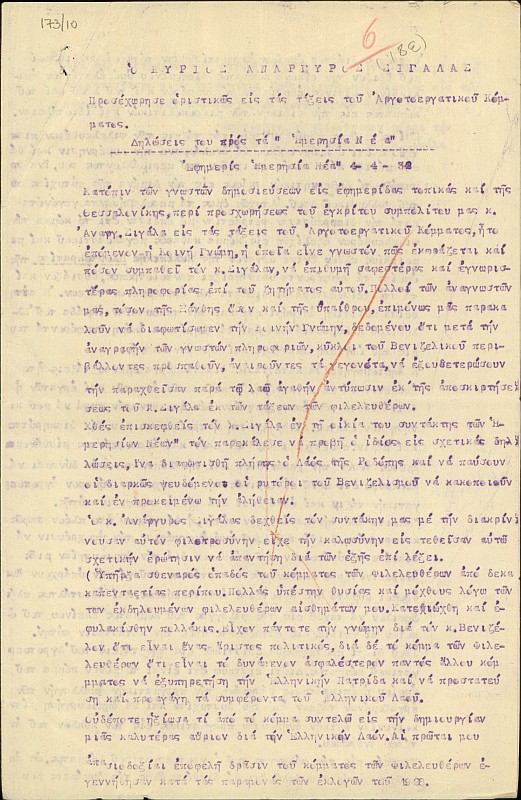 173/10
6
(182)
Ὁ ΚΥΡΙΟΣ ΑΝΑΡΓΥΡΟΣ ΣΙΓΑΛΑΣ
Προσέχώρησε ὁριστικῶς εἰς τάς τάξεις τοῦ Ἀργοτοεργατικοῦ Κόμ-
ματος.
Δηλώσεις του πρός τά " Ἡμερησία Ν έ α"
Ἐφημερίς Ἡμερησία Νέα" 4-4-32
Κατόπιν τῶν γνωστῶν δημοσιεύσεων εἰς ἐφημερίδας τοπικάς καί τῆς
Θεσσαλονίκης, περί προσχωρήσεως τοῦ ἐγκρίτου συμπολίτου μας κ.
Ἀναργ. Σιγάλα εἰς τάς τάξεις τοῦ Ἀργοτοεργατικοῦ Κόμματος, ἦτο
ἐπόμενον ἡ Κοινή Γνώμη, ἡ ὁποία εἶνε γνωστόν πῶς ἐκφράζεται καί
πόσον συμπαθεῖ τόν κ. Σιγάλαν, νά ἐπιθυμῇ σαφεστέρας καί ἐγκυρισ-
τέρας πληροφορίας ἐπί τοῦ ζητήματος αὐτοῦ. Πολλοί τῶν ἀναγνωστῶν
μας, τόσον τῆς Ξάνθης ὅσον καί τῆς ὑπαίθρου, ἐπιμόνως μᾶς παρακα
λοῦν νά διαφωτίσωμεν τήν Κοινήν Γνώμην, δεδομένου ὅτι μετά τήν
ἀναγραφήν τῶν γνωστῶν πληροφοριῶν, κύκλοι τοῦ Βενιζελικοῦ περι-
βάλλοντος προσπαθοῦν, ἀναιροῦντες τά γεγονότα, νά ἐξουδετερώσουν
τήν παραχθεῖσαν παρά τῷ λαῷ ἀγαθήν ἀντύπωσιν ἐκ τῆς ἀποσκιρτήσε
σεως τοῦ κ. Σιγάλα ἐκ τῶν τάξεων τῶν φιλελευθέρων.
Χθές ἐπισκεφθείς τόν κ. Σιγάλα ἐν τῇ οἰκίᾳ του συντάκτης τῶν "Ἡ-
μερησίων Νέων" τόν παρεκάλεσε νά προβῇ ὁ ἴδιος εἰς σχετικάς δηλ
λώσεις, ἵνα διαφωτισθῇ πλήρως ὁ Λαός τῆς Ροδόπης καί νά παύσουν
οἱ διαρκῶς ψευδόμενοι οἱ ρήτοροι τοῦ Βενιζελισμοῦ νά κακοποιοῦν
καί ἐν προκειμένῳ τήν ἀλήθειαν.
Ὁ κ. Ἀνάργυρος Σιγάλας δεχθείς τόν συντάκτην μας μέ τήν διακρίν
νουσαν αὐτόν φιλοφροσύνην εἶχε τήν καλωσύνην εἰς τεθεῖσαν αὐτῷ
σχετικήν ἐρώτησιν νά ἀπαντήσῃ διά τῶν ἑξῆς ἐπί λέξει.
( Ὑπῆρξα σθεναρός ὀπαδός τοῦ κόμματος τῶν Φιλελευθέρων ἀπό δεκα
καπενταετίας περίπου. Πολλάς ὑπέστην θυσίας καί μόχθους λόγω τῶν
τῶν ἐκδηλουμένων φιλελευθέρων αἰσθημάτων μου. Κατεδιώχθη καί ἐ-
φυλακίσθην πολλάκις. Εἶχον πάντοτε τήν γνώμην διά τόν κ. Βενιζέ-
λον, ὅτι εἶναι ἕνας ἄριστος πολιτικός, διά δέ τό κόμμα τῶν Φιλε-
λευθέρων ὅτι εἶναι τό δυνάμενον ἀσφαλέστερον παντός ἄλλου κόμ
μματος νά ἐξυπηρετήσῃ τήν Ἑλληνικήν Πατρίδα καί νά προστατεύ
σῃ καί προαγάγῃ τά συμφέροντα τοῦ Ἑλληνικοῦ Λαοῦ.
Οὐδέποτε ἠξίωσα τί ἀπό τό κόμμα συντελῶ εἰς τήν δημιουργίαν
μιᾶς καλυτέρας αὔριον διά τήν Ἑλληνικόν Λαόν. Αἱ πρῶται μου
ἀπαισιοδοξίαι ἐπωφελῆ δρᾶσιν τοῦ κόμματος τῶν φιλελευθέρων ἐ-
γεννήθησαν κατά τάς παραμονάς τῶν ἐκλογῶν τοῦ 1928.